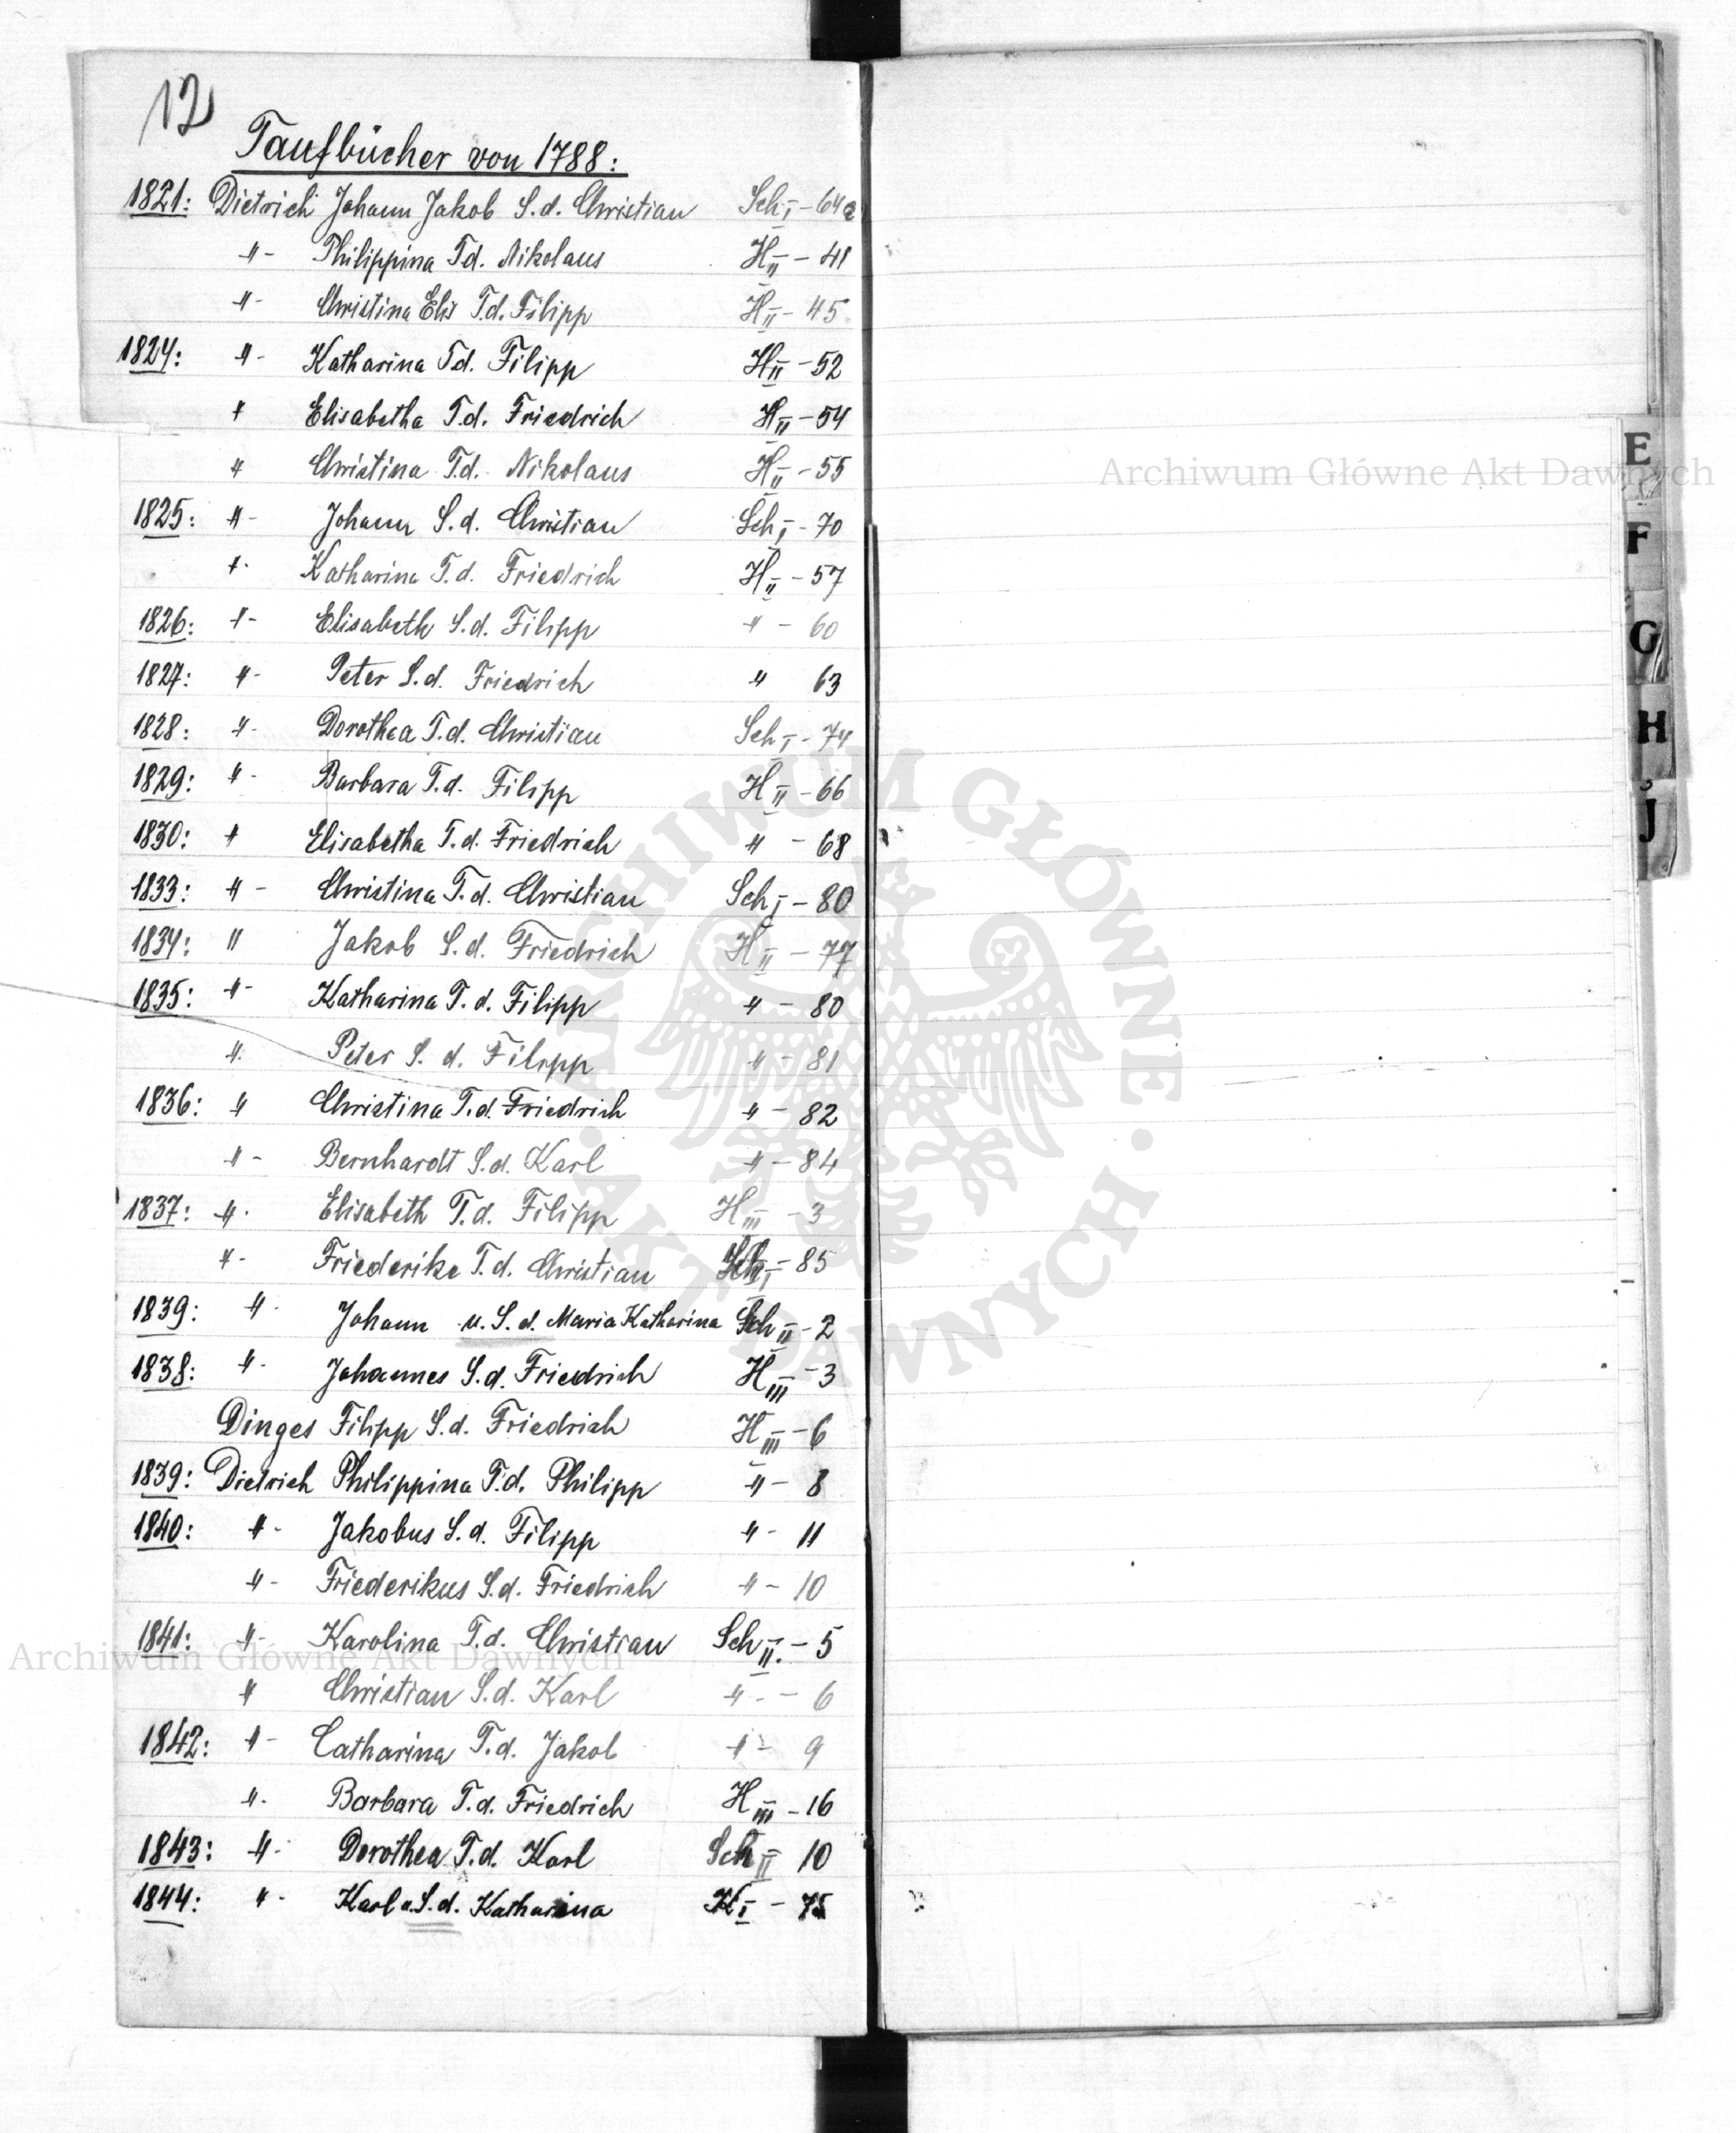 12
Taufbücher von 1788:
1821: Dietrich Johann Jakob S.d. Christian Sch I - 64a
-"- Philippina T.d. Nikolaus H II - 41
-"- Christina Elis T.d. Filipp H II - 45
1824: -"- Katharina T.d. Filipp H II - 52
" Elisabetha T.d. Friedrich H II - 54
" Christina T.d. Nikolaus H II - 55
1825: -"- Johann S.d. Christian Sch I - 70
"- Katharina T.d. Friedrich H II - 57
1826: "- Elisabeth S.d. Filipp " - 60
1827: "- Peter S.d. Friedrich " 63
1828: "- Dorothea T.d. Christian Sch I - 74
1829: "- Barbara T.d. Filipp H II - 66
1830: " Elisabetha T.d. Friedrich " - 68
1833: "- Christina T.d. Christian Sch I - 80
1834: " Jakob S.d. Friedrich H II - 77
1835: -"- Katharina T.d. Filipp " - 80
". Peter S.d. Filipp " - 81
1836: " Christina T.d. Friedrich " - 82
"- Bernhardt S.d. Karl " - 84
1837: -". Elisabeth T.d. Filipp H III - 3
"- Friederike T.d. Christian Sch I - 85
1839: "- Johann u.S.d. Maria Katharina Sch II - 2
1838: "- Johannes S.d. Friedrich H III - 3
Dinges Filipp S.d. Friedrich H III - 6
1839: Dietrich Philippina T.d. Philipp -"- 8
1840: "- Jakobus S.d. Filipp "- 11
-"- Friederikus S.d. Friedrich "- 10
1841: "- Karolina T.d. Christian Sch II. - 5
" Christian S.d. Karl ". - 6
1842: "- Catharina T.d. Jakob "- 9
". Barbara T.d. Friedrich H III - 16
1843: -"- Dorothea T.d. Karl Sch II 10
1844: "- Karl u.S.d. Katharina K I - 75
E
F
G
H
J
Archiwum Główne Akt Dawnych
Archiwum Główne Akt Dawnych
ARCHIWUM GŁÓWNE · AKT DAWNYCH ·